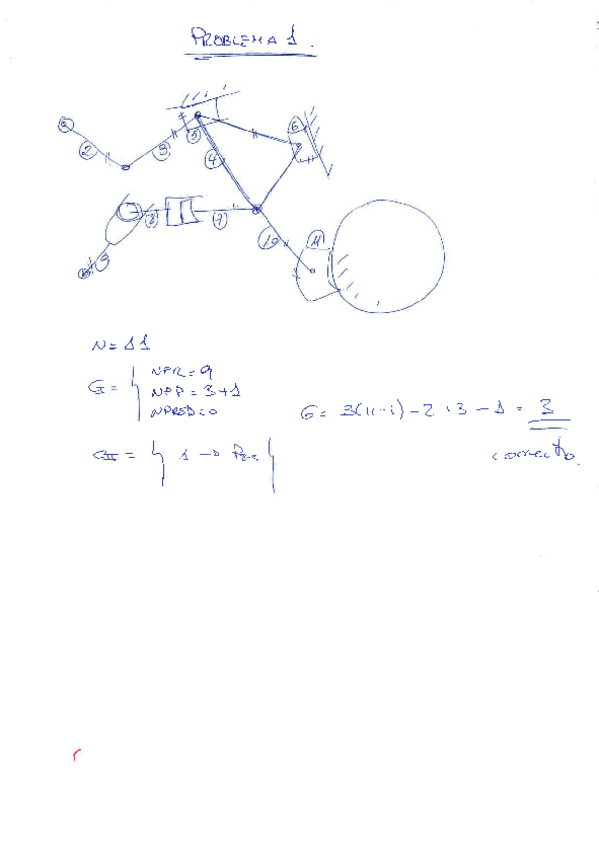 PROBLEMA 1.
6
5
2
3
4
8
7
9
10
11
N = 11
G = { NPR = 9
NPP = 3+1
NPRSD = 0
G = 3(11-1) - 2 · 13 - 1 = 3
correcto.
GIII = { 1 →